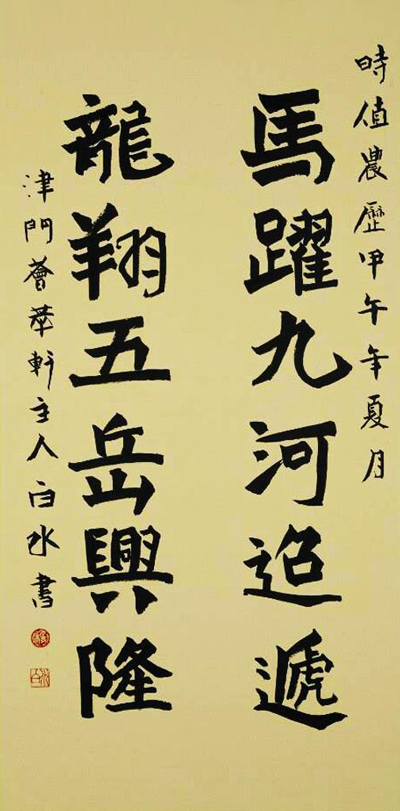 時值農歷甲午年夏月
馬躍九河迢遞
龍翔五岳興隆
津門薈萃軒主人白水書